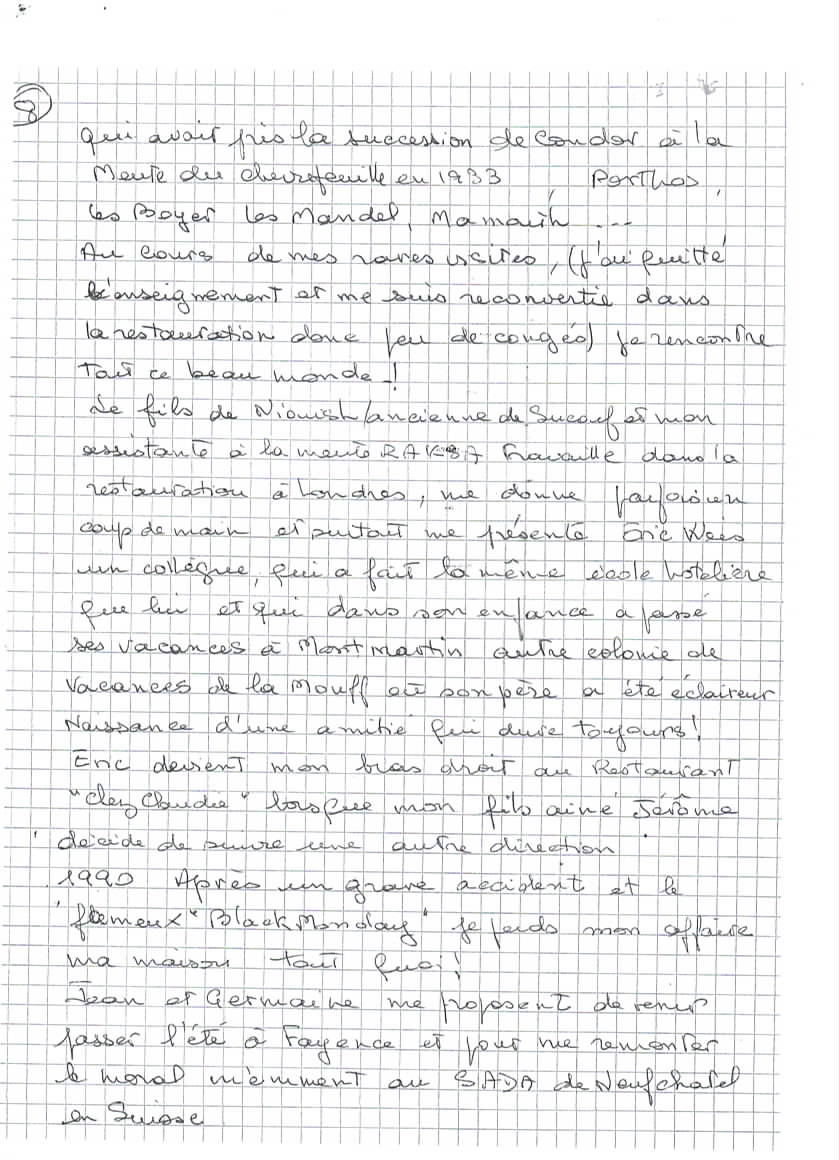 8
qui avait pris la succession de Condor à la
Meute du chevrefeuille en 1933 , Porthos,
les Boyer les Mandel, Mamauih ...
Au cours de mes rares visites, (j'ai quitté
l'enseignement et me suis reconvertie dans
la restauration donc peu de congés) je rencontre
tout ce beau monde !
Le fils de Niouish (ancienne de Sucouf et mon
assistante à la meute RAKSA travaille dans la
restauration à Londres, me donne parfois un
coup de main et surtout me présente Eric Wees
un collègue, qui a fait la même école hotelière
que lui et qui dans son enfance a passé
ses vacances à Montmartin autre colonie de
vacances de la Mouff où son père a été éclaireur
Naissance d'une amitié qui dure toujours !
Eric devient mon bras droit au Restaurant
"Chez Claudie" lorsque mon fils ainé Jérôme
décide de suivre une autre direction
1990 Après un grave accident et le
fameux "Black Monday" je perds mon affaire
ma maison tout quoi !
Jean et Germaine me proposent de venir
passer l'été à Fayence et pour me remonter
le moral m'emment au SADA de Neufchatel
en Suisse